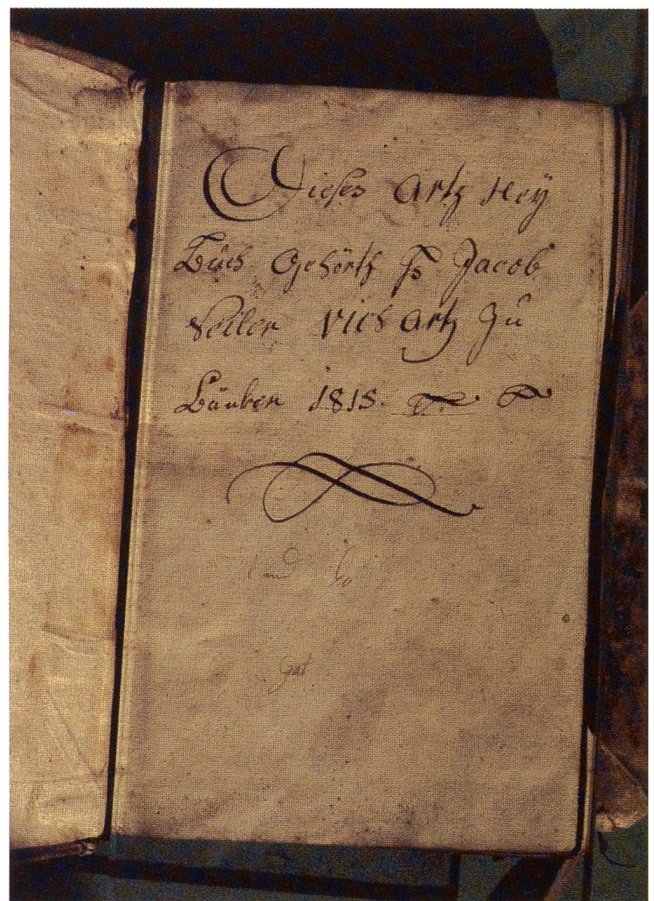 Dieses Artz Ney
Buch Gehörth Jacob
Seiler Vich Artz Zu
Läuben 1818.
und so
gut